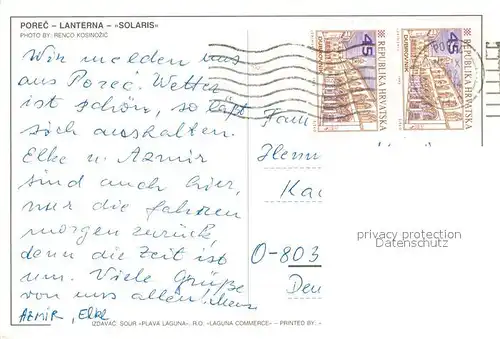 POREČ – LANTERNA – »SOLARIS«
PHOTO BY: RENCO KOSINOŽIĆ
Wir melden uns
aus Poreč. Wetter
ist schön, so läßt
sich aushalten.
Elke u. Azmir
sind auch hier,
nur die fahren
morgen zurück,
denn die Zeit ist
um. Viele Grüße
von uns allen!
AZMIR, Elke
IZDAVAČ: SOUR »PLAVA LAGUNA«, R.O. »LAGUNA COMMERCE« – PRINTED BY:
45
REPUBLIKA HRVATSKA
DUBROVNIK
45
REPUBLIKA HRVATSKA
Fam
Ka
O-803
Deu
privacy protection
Datenschutz